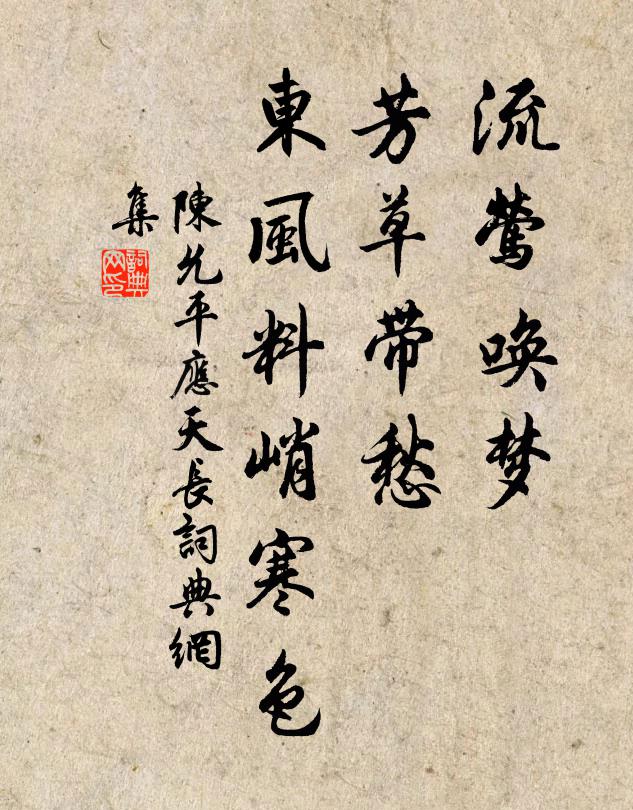 流莺唤梦
芳草带愁
東風料峭寒色
陳允平應天長詞典網
集
詞典网印